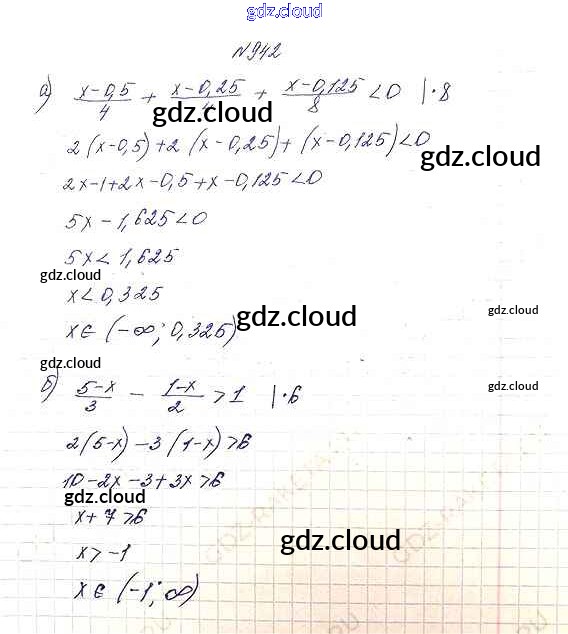 gdz.cloud
№942
а) (x-0,5)/4 + (x-0,25)/4 + (x-0,125)/8 < 0 |·8
gdz.cloud
2(x-0,5)+2(x-0,25)+(x-0,125)<0
gdz.cloud
2x-1+2x-0,5+x-0,125<0
5x-1,625<0
5x<1,625
gdz.cloud
x<0,325
gdz.cloud
x∈(-∞;0,325)
gdz.cloud
gdz.cloud
б) (5-x)/3 - (1-x)/2 > 1 |·6
gdz.cloud
2(5-x)-3(1-x)>6
10-2x-3+3x>6
gdz.cloud
x+7>6
gdz.cloud
x>-1
x∈(-1;∞)